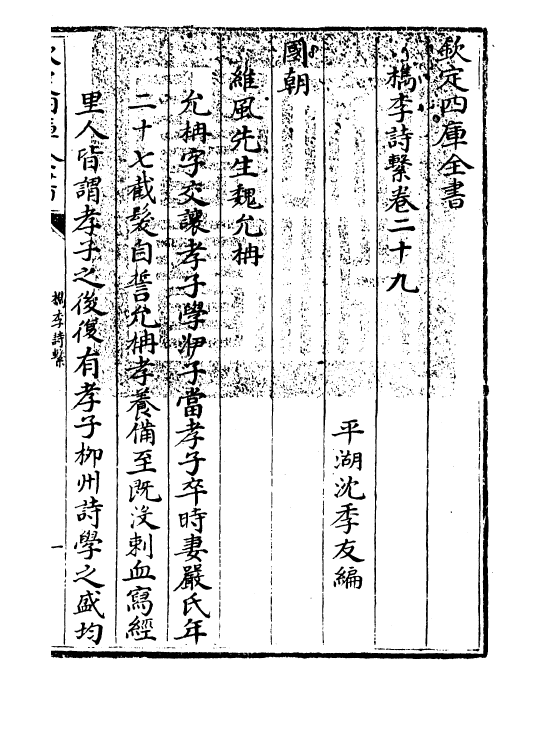 欽定四庫全書
檇李詩繫卷二十九
平湖沈季友編
國朝
維風先生魏允枏
允枏字交讓孝子學洢子當孝子卒時妻嚴氏年
二十七截髮自誓允枏孝養備至既沒刺血寫經
里人皆謂孝子之後復有孝子柳州詩學之盛均
檇李詩繫
一